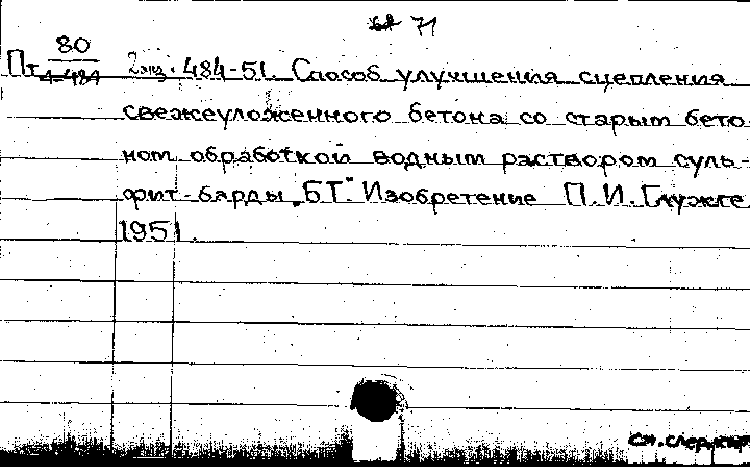 71
80
Пт 2 экз. 484-51. Способ улучшения сцепления
свежеуложенного бетона со старым бето-
ном обработкой водным раствором суль-
фит-барды „БТ“. Изобретение П.И. Глужге
1951.
см. след.